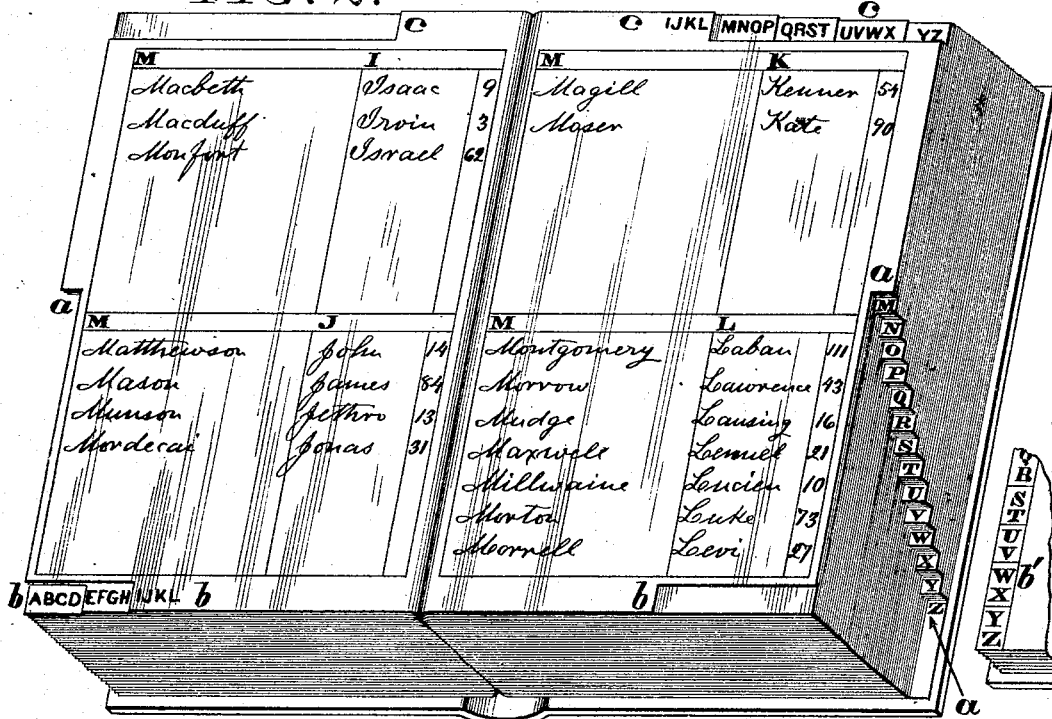 FIG. 2.
c
c IJKL MNOP QRST UVWX YZ
c
M I
Macbeth Isaac 9
Macduff Irvin 3
Monfort Israel 62
M K
Magill Kenner 54
Moser Kate 90
a
a
M J
Matthewson John 14
Mason James 84
Munson Jethro 13
Mordecai Jonas 31
M L
Montgomery Laban 111
Morrow Lawrence 43
Mudge Lansing 16
Maxwell Lemuel 21
Millwaine Lucien 10
Morton Luke 73
Morrell Levi 27
M
N
O
P
Q
R
S
T
U
V
W
X
Y
Z
b ABCD EFGH IJKL b
b
a
Q
R
S
T
U
V
W b'
X
Y
Z